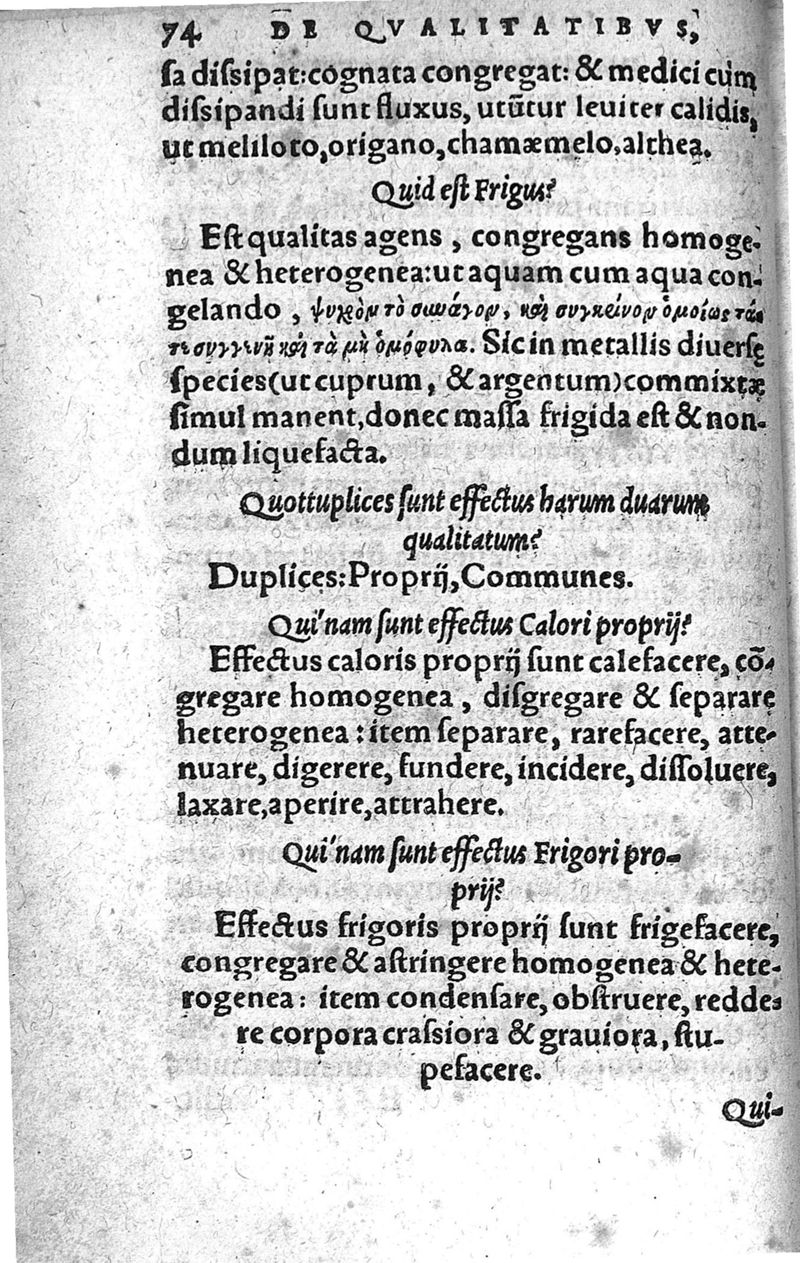 74 DE QVALITATIBVS,
ſa diſsipat:cognata congregat: & medici cùm
diſsipandi ſunt fluxus, utũtur leuiter calidis,
ut meliloto,origano,chamæmelo,althea.
Quid eſt Frigus?
Eſt qualitas agens , congregans homoge-
nea & heterogenea:ut aquam cum aqua con-
gelando , ψυχρὸν τὸ συνάγον, καὶ συγκρῖνον ὁμοίως τά-
τι συγγενῆ καὶ τὰ μὴ ὁμόφυλα. Sic in metallis diuerſę
ſpecies(ut cuprum, & argentum)commixtæ
ſimul manent,donec maſſa frigida eſt & non-
dum liquefacta.
Quottuplices ſunt effectus harum duarum
qualitatum?
Duplices:Proprij,Communes.
Qui'nam ſunt effectus Calori proprij?
Effectus caloris proprij ſunt calefacere, cõ-
gregare homogenea , diſgregare & ſeparare
heterogenea : item ſeparare, rarefacere, atte-
nuare, digerere, fundere, incidere, diſſoluere,
laxare,aperire,attrahere.
Qui'nam ſunt effectus Frigori pro-
prij?
Effectus frigoris proprij ſunt frigefacere,
congregare & aſtringere homogenea & hete-
rogenea: item condenſare, obſtruere, redde-
re corpora craſsiora & grauiora, ſtu-
pefacere.
Qui-